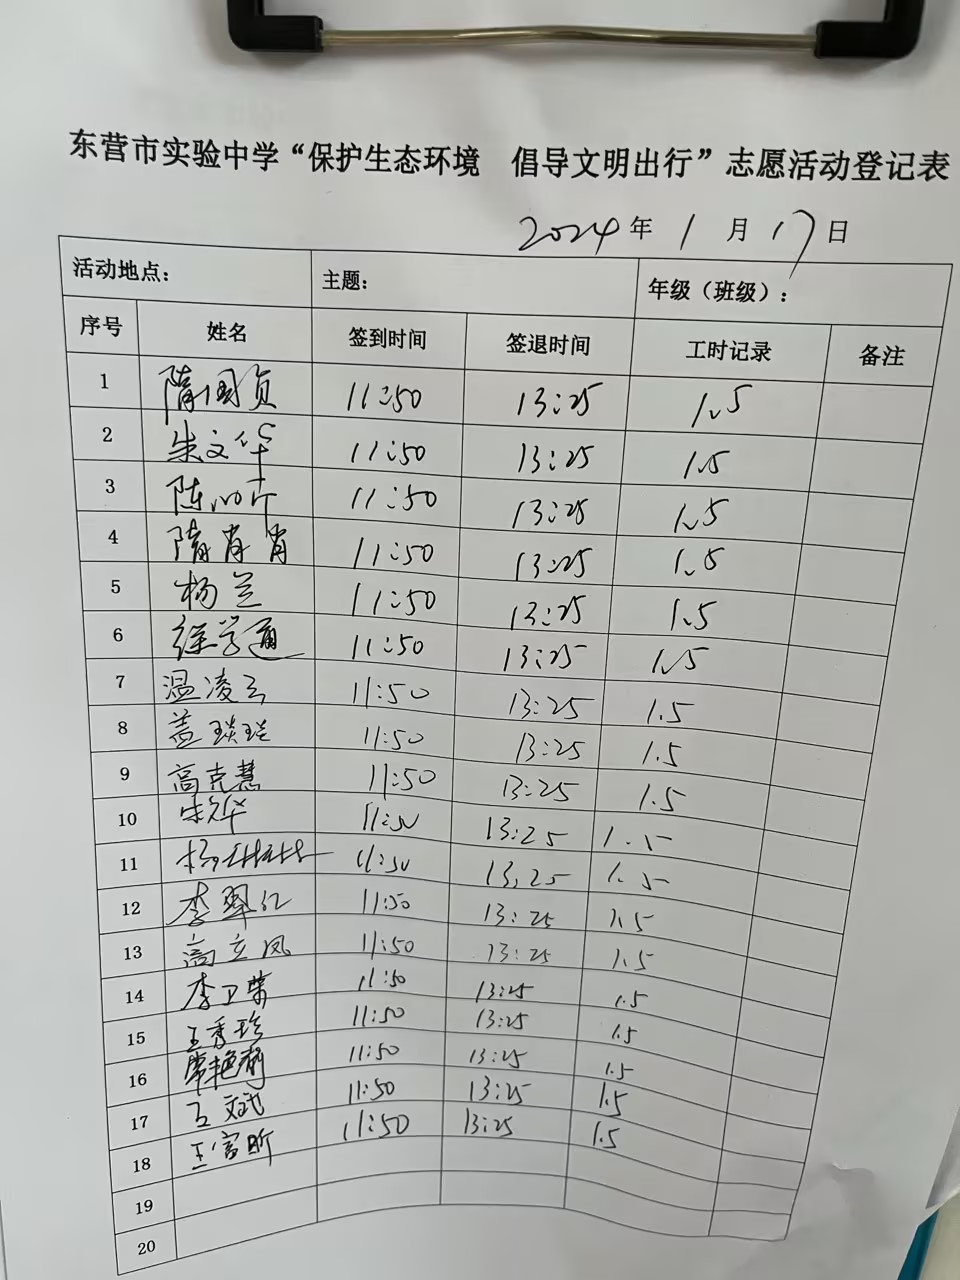 东营市实验中学“保护生态环境 倡导文明出行”志愿活动登记表
2024年1月17日
活动地点： 主题： 年级（班级）：
序号 姓名 签到时间 签退时间 工时记录 备注
1 隋国贞 11:50 13:25 1.5
2 朱文华 11:50 13:25 1.5
3 陈 11:50 13:25 1.5
4 隋肖肖 11:50 13:25 1.5
5 杨兰 11:50 13:25 1.5
6 徐学通 11:50 13:25 1.5
7 温凌云 11:50 13:25 1.5
8 盖琰琰 11:50 13:25 1.5
9 高克慧 11:50 13:25 1.5
10 华 11:50 13:25 1.5
11 杨林林 11:50 13:25 1.5
12 李翠红 11:50 13:25 1.5
13 高立凤 11:50 13:25 1.5
14 李卫荣 11:50 13:25 1.5
15 王秀珍 11:50 13:25 1.5
16 常艳 11:50 13:25 1.5
17 王斌 11:50 13:25 1.5
18 王富昕 11:50 13:25 1.5
19
20